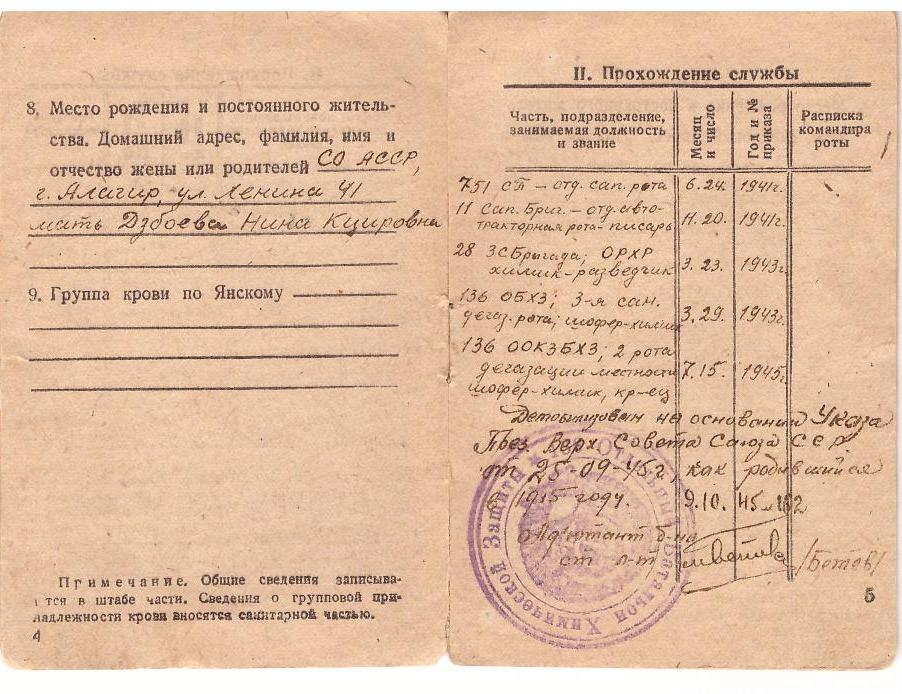 8. Место рождения и постоянного житель-
ства. Домашний адрес, фамилия, имя и
отчество жены или родителей СО АССР,
г. Алагир, ул. Ленина 41
мать Дзбоева Нина Кцировна
9. Группа крови по Янскому
Примечание. Общие сведения записыва-
ются в штабе части. Сведения о групповой при-
надлежности крови вносятся санитарной частью.
4
II. Прохождение службы
Часть, подразделение,
занимаемая должность
и звание
Месяц
и число
Год и №
приказа
Расписка
командира
роты
751 СП – отд. сап. рота 6.24. 1941г.
11 Сап. Бриг. – отд. авто-
тракторная рота – писарь 11.20. 1941г.
28 ЗСБригада; ОРХР
химик-разведчик 3.23. 1943г.
136 ОБХЗ; 3-я сан.
дегаз. рота; шофер-химик 3.29. 1943г.
136 ООКЗБХЗ; 2 рота
дегазации местности 7.15. 1945г.
шофер-химик, кр-ец
Демобилизован на основании Указа
През. Верх. Совета Союза ССР
от 25-09-45г. как родившийся
в 1915 году. 9.10. 45
Адъютант б-на
ст. л-т /Бетов/
Батальон Химической Защиты
5